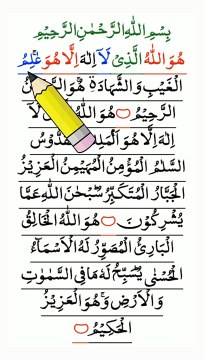 بِسْمِ اللّٰهِ الرَّحْمٰنِ الرَّحِيْمِ
هُوَ اللّٰهُ الَّذِىْ لَآ اِلٰهَ اِلَّا هُوَ عٰلِمُ
الْغَيْبِ وَالشَّهَادَةِ هُوَ
الرَّحِيْمُ هُوَ اللّٰهُ لَآ
اِلٰهَ اِلَّا هُوَ
السَّلٰمُ الْمُؤْمِنُ الْمُهَيْمِنُ الْعَزِيْزُ
الْجَبَّارُ الْمُتَكَبِّرُ سُبْحٰنَ اللّٰهِ عَمَّا
يُشْرِكُوْنَ هُوَ اللّٰهُ الْخَالِقُ
الْبَارِئُ الْمُصَوِّرُ لَهُ الْاَسْمَآءُ
الْحُسْنٰى يُسَبِّحُ لَهٗ مَا فِى السَّمٰوٰتِ
وَالْاَرْضِ وَهُوَ الْعَزِيْزُ
الْحَكِيْمُ